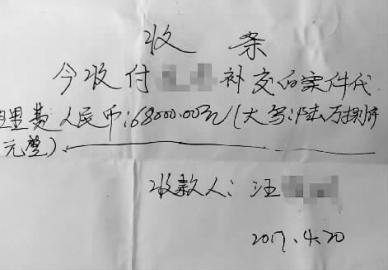 收条
今收付补交的案件代
理费人民币:68000.00元(大写:陆万捌仟
元整)
收款人:汪
2017.4.20